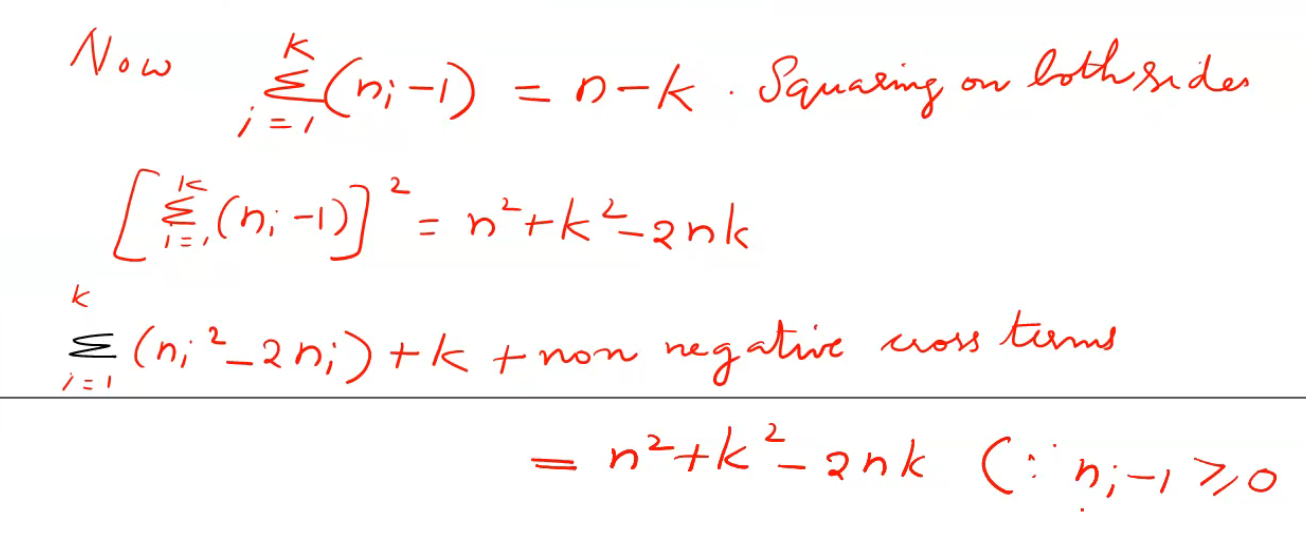 Now $\sum_{i=1}^{k}(n_i-1) = n-k$ . Squaring on both sides
$\left[\sum_{i=1}^{k}(n_i-1)\right]^2 = n^2+k^2-2nk$
$\sum_{i=1}^{k}(n_i^2-2n_i)+k$ + non negative cross terms
$= n^2+k^2-2nk$ $(\because n_i-1 \geq 0$